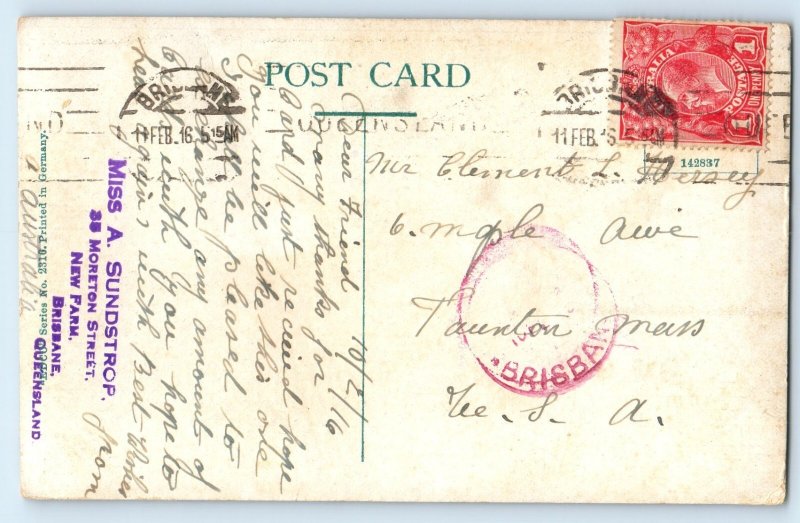 POST CARD
BRISBANE
11 FEB. 16 5 15AM
QUEENSLAND
BRISBANE
11 FEB. 16 5 15AM
AUSTRALIA
POSTAGE
1 1
142837
Mr Clement L. Hersey
6. Maple Ave
Taunton Mass
U. S. A.
BRISBANE
10/2/16
Dear Friend
Many thanks for
Card just recieved hope
you will like this one
I shall be pleased to
exchange any amount of
with you hope to
hear again with Best Wishes
from
MISS A. SUNDSTROP,
35 MORETON STREET,
NEW FARM,
BRISBANE,
QUEENSLAND
Series No. 2316. Printed in Germany.
Australia